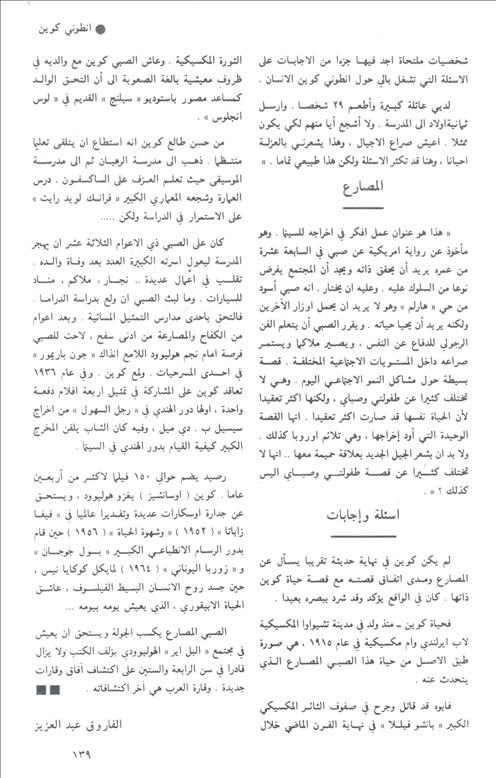 ● انطوني كوين
شخصيات ملتحاة اجد فيهـا جزءا من الاجابات على
الاسئلة التي تشغل بالي حول انطوني كوين الانسان .
لديي عائلة كبيرة وأطعم ٢٩ شخصا . وارسل
ثمانيةاولاد الى المدرسة . ولا أشجع أيا منهم لكي يكون
ممثلا . اعيش صراع الاجيال ، وهذا يشعرني بالعزلة
احيانا ، وهنا قد تكثر الاسئلة ولكن هذا طبيعي تماما . »
المصارع
« هذا هو عنوان عمل افكر في اخراجه للسينما . وهو
مأخوذ عن رواية امريكية عن صبي في السابعة عشرة
من عمره يريد أن يحقق ذاته ويجد أن المجتمع يفرض
نوعا من السلوك عليه . وعليه ان يختار . انه صبي أسود
من حي « هارلم » وهو لا يريد ان يحمل اوزار الآخرين
ولكنه يريد أن يحيا حياته . ويقرر الصبي أن يتعلم الفن
الرجولي للدفاع عن النفس ، ويصبر ملاكما ويستمر
صراعه داخل المستويات الاجتماعية المختلفة . قصة
بسيطة حول مشاكل النمو الاجتماعي اليوم . وهي لا
تختلف كثيرا عن طفولتي وصباي ، ولكنها اكثر تعقيدا
لأن الحياة نفسها قد صارت اكثر تعقيدا . انها القصة
الوحيدة التي أود إخراجها ، وهي تلائم اوروبا كذلك .
ولا بد ان يشعر الجيل الجديد بعلاقة حميمة معها .. انها لا
تختلف كثيرا عن قصة طفولتي وصباي اليس
كذلك ؟ » .
اسئلة وإجابات
لم يكن كوين في نهاية حديثة تقريبا يسأل عن
المصارع ومدى اتفاق قصته مع قصة حياة كوين
ذاتها . كان في الواقع يؤكد وقد شرد ببصره بعيدا .
فحياة كوين ــ منذ ولد في مدينة تشيواوا المكسيكية
لاب ايرلندي وام مكسيكية في عام ١٩١٥ ، هي صورة
طبق الاصل من حياة هذا الصبي المصارع الذي
يتحدث عنه .
فابوه قد قاتل وجرح في صفوف الثائر المكسيكي
الكبير « بانشو فيلا » في نهاية القرن الماضي خلال
الثورة المكسيكية . وعاش الصبي كوين مع والديه في
ظروف معيشية بالغة الصعوبة الى أن التحق الوالد
كمساعد مصور باستوديو « سيلنج » القديم في « لوس
انجلوس » .
من حسن طالع كوين انه استطاع ان يتلقى تعليما
منتظما . ذهب الى مدرسة الرهبان ثم الى مدرسة
الموسيقى حيث تعلم العزف على الساكسفون . درس
العمارة وشجعه المعماري الكبير « فرانك لويد رايت »
على الاستمرار في الدراسة ولكن .....
كان على الصبي ذي الاعوام الثلاثة عشر ان يهجر
المدرسة ليعول أسرته الكبيرة العدد بعد وفاة والده .
تقلب في أعمال عديدة .. نجار ، ملاكم ، مناد
للسيارات . وما لبث الصبي ان ولع بدراسة الدراما .
فالتحق باحدى مدارس التمثيل المسائية . وبعد اعوام
من الكفاح والمصارعة من ادنى سفح ، لاحت للصبي
فرصة امام نجم هوليوود اللامع انذاك « جون باريمور »
في احدى المسرحيات . ولمع كوين . وفي عام ١٩٣٦
تعاقد كوين على المشاركة في تمثيل اربعة افلام دفعة
واحدة ، اولها دور الهندي في « رجل السهول » من اخراج
سيسيل ب . دي ميل ، وفيه كان الشاب يلقن المخرج
الكبير كيفية القيام بدور الهندي في السينما .
رصيد يضم حوالي ١٥٠ فيلما لاكثر من أربعين
عاما . كوين ( اوسانشيز ) يغزو هوليوود ، ويستحق
عن جدارة اوسكارات عديدة وتقديرا عالميا في « فيفا
زاباتا » ( ١٩٥٢ ) « وشهوة الحياة » ( ١٩٥٦ ) حين قام
بدور الرسام الانطباعي الكبير « بول جوجان »
و « زوربا اليوناني » ( ١٩٦٤ ) لمايكل كوكايا نيس ،
حين جسد روح الانسان البسيط الفيلسوف ، عاشق
الحياة الابيقوري ، الذي يعيش يومه بيومه ...
الصبي المصارع يكسب الجولة ويستحق ان يعيش
في مجتمع « البل اير » الهوليوودي بؤلف الكتب ولا يزال
قادرا في سن الرابعة والستين على اكتشاف أفاق وقارات
جديدة . وقارة العرب هي آخر اكتشافاته . ■ ■
الفاروق عبد العزيز
١٣٩